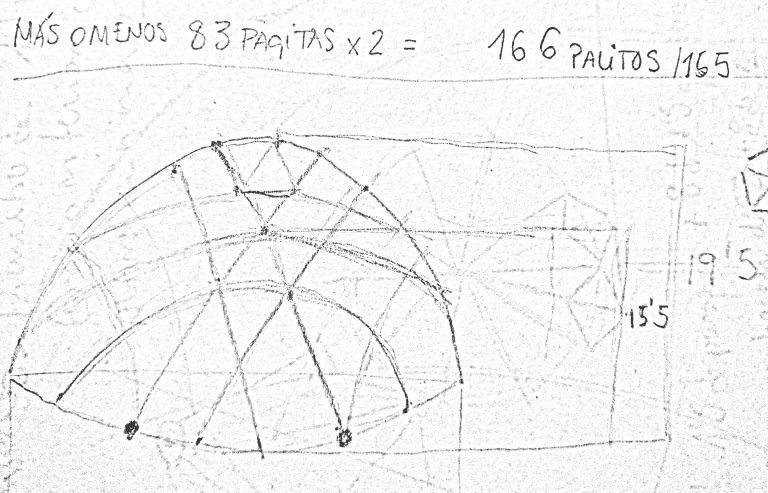 MÁS O MENOS 83 PAGITAS x 2 = 166 PALITOS /165
19'5
15'5